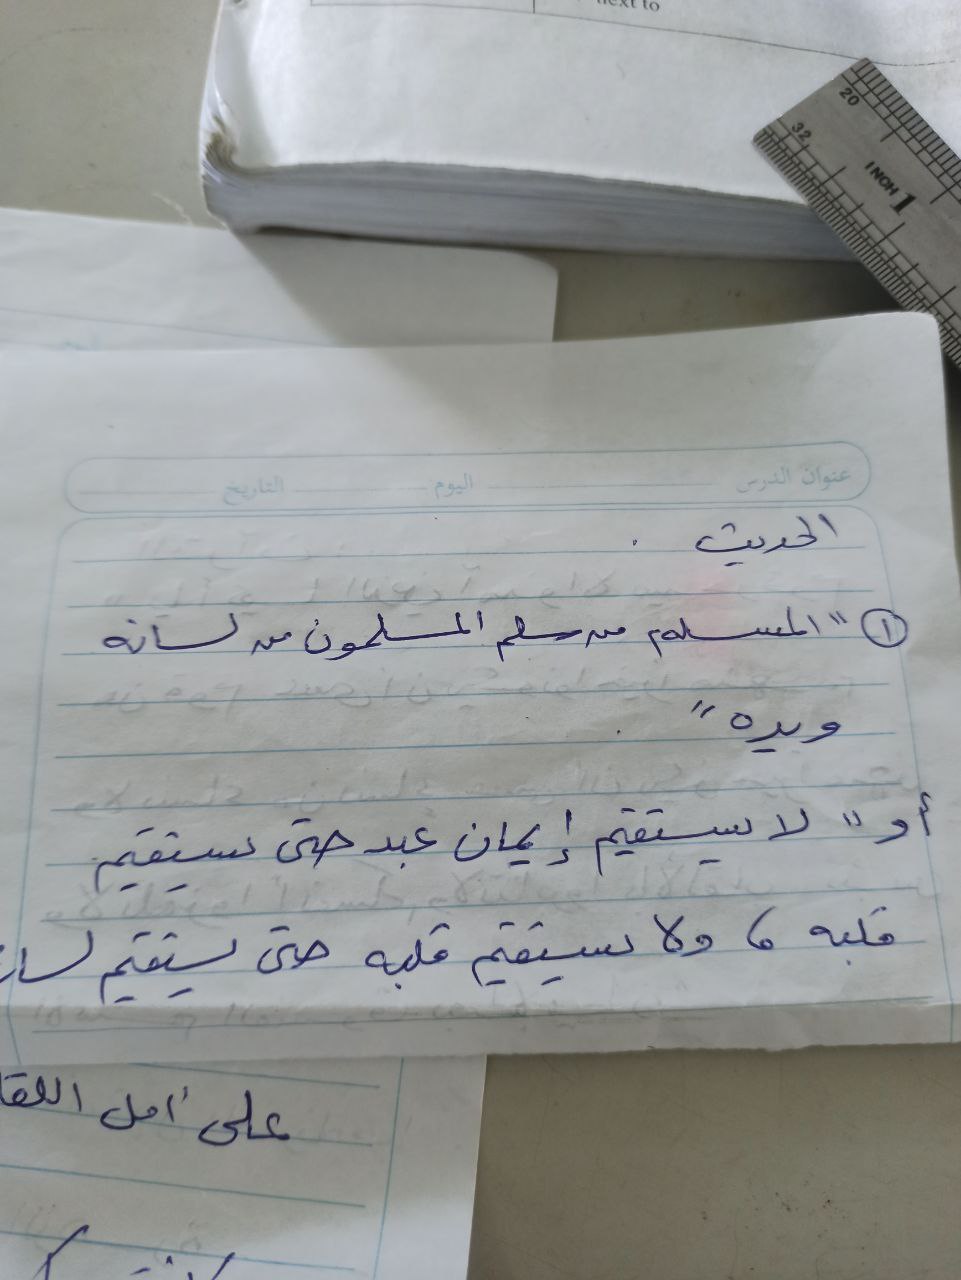 next to
20
32
INCH 1
عنوان الدرس اليوم التاريخ
الحديث .
① "المسلم من سلم المسلمون من لسانه
ويده" .
أو " لا يستقيم إيمان عبد حتى يستقيم
قلبه ، ولا يستقيم قلبه حتى يستقيم
على أمل